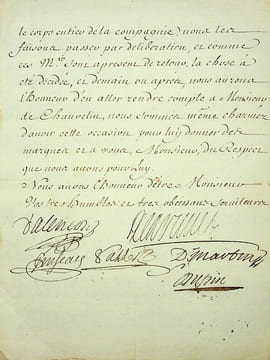 le corps entier de la compagnie, nous les
faisons passer par deliberation, et comme
ces M.rs sont apresent de retour, la chose a
eté decidée, et demain ou aprés, nous aurons
l'honneur d'en aller rendre compte a Monsieur
de Chauvelin, nous sommes même charmez
d'avoir cette occasion pour luy donner des
marques et a vous, Monsieur, du Respect
que nous avons pour Luy
Nous avons l'honneur d'être Monsieur
Vos tres humbles et tres obeissans serviteurs
Dalençon